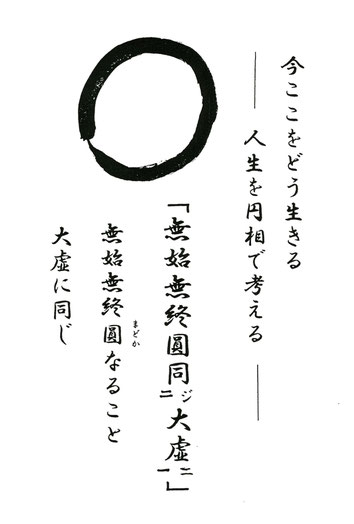 今ここをどう生きる
――人生を円相で考える――
「無始無終圓同ジ二大虚ニ一」
無始無終圓なること
まどか
大虚に同じ